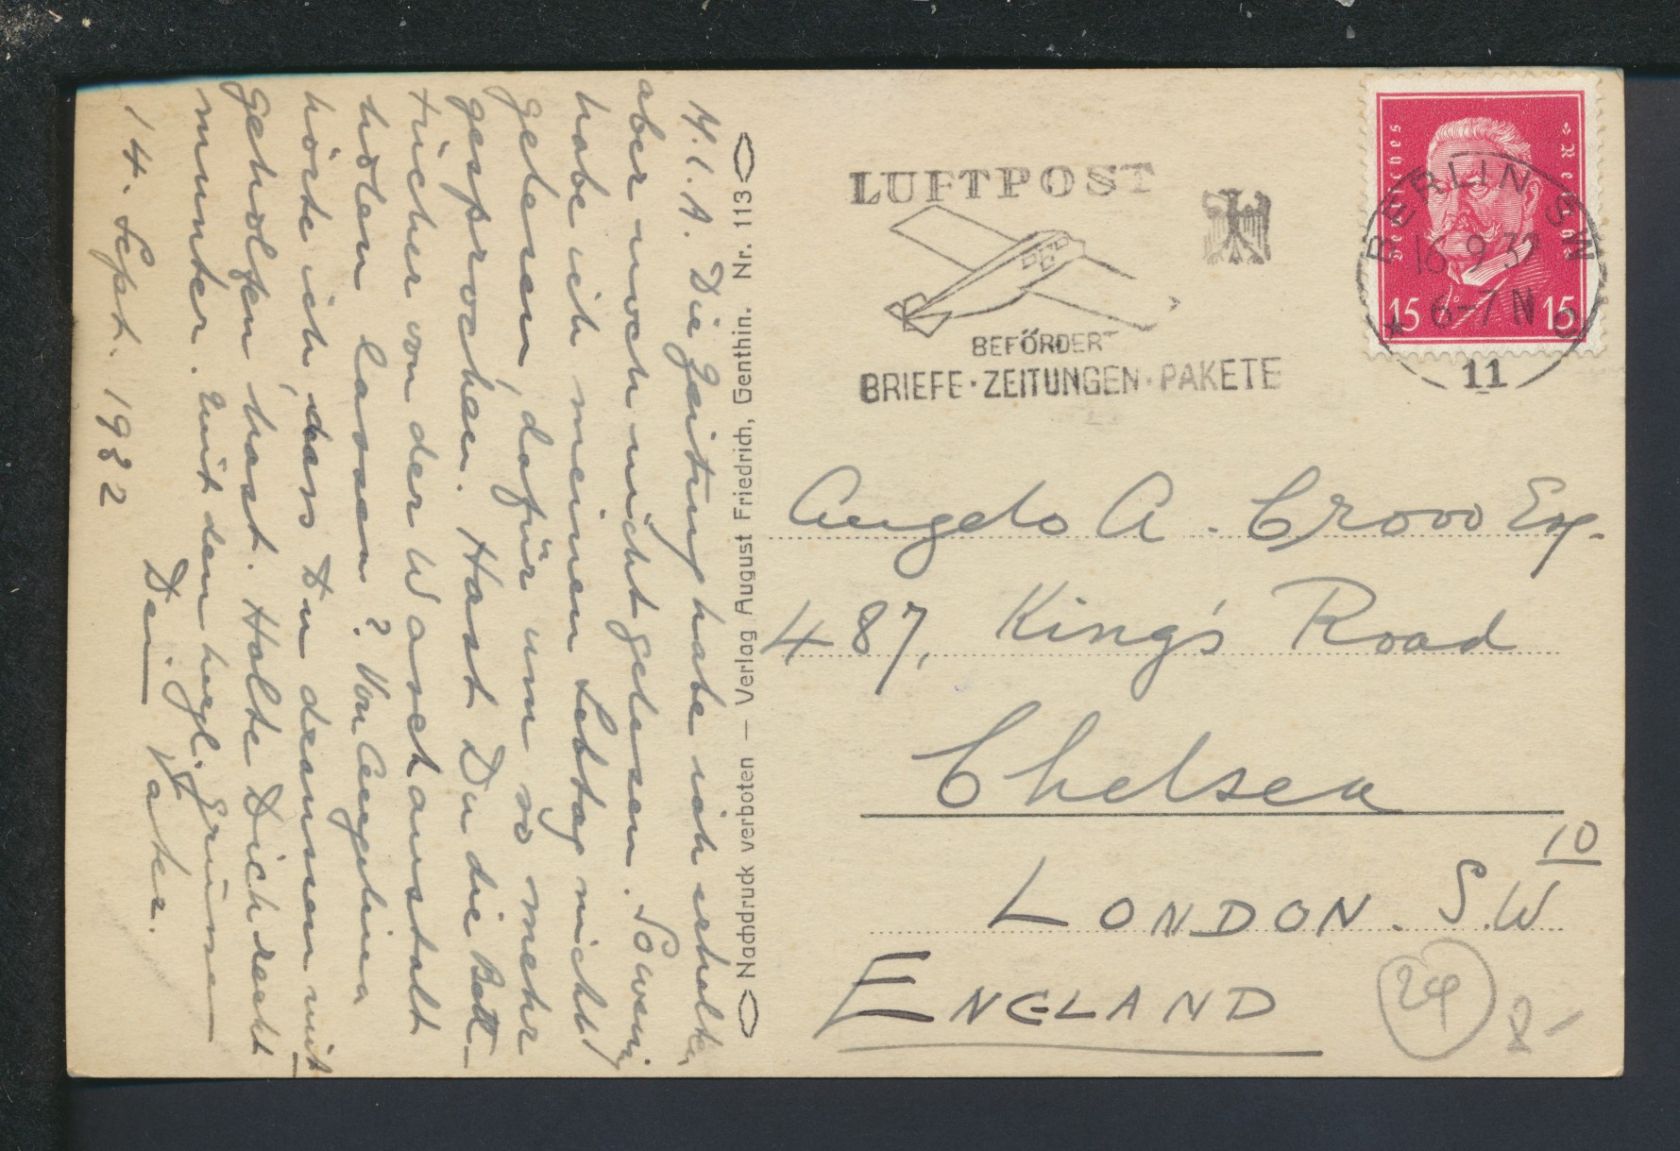 M. l. A. Die Zeitung habe ich erhalten,
aber noch nicht gelesen. Soweing
habe ich meinen Lebtag nicht
gelesen, dafür um so mehr
gesprochen. Hast Du die Bett-
tücher von der Waschanstalt
holen lassen? Von Angelina
hörte ich, dass Du draussen mit
geholfen hast. Halte Dich recht
munter. Mit den hrzl. Grüssen
Dein Vater.
14. Sept. 1932
Nachdruck verboten — Verlag August Friedrich, Genthin. Nr. 113
LUFTPOST
BEFÖRDERT
BRIEFE·ZEITUNGEN·PAKETE
Deutsches Reich
15 15
BERLIN SW
16.9.32
6-7 N
11
Angelo A. Crovo Esq.
487, King's Road
Chelsea
LONDON. S.W. 10
ENGLAND
24
8-